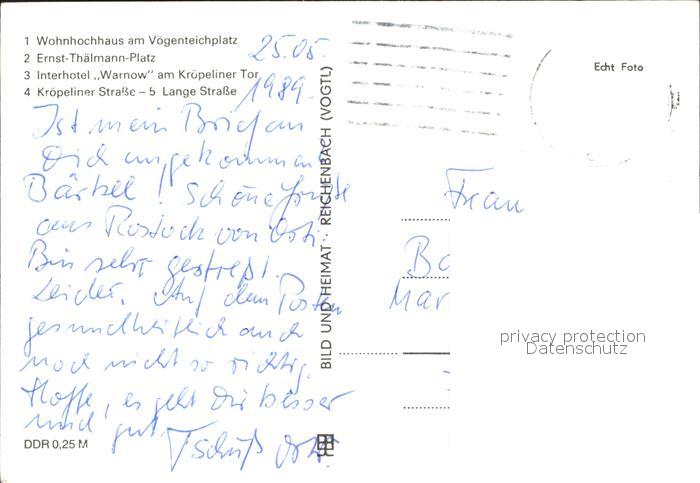 1 Wohnhochhaus am Vögenteichplatz
2 Ernst-Thälmann-Platz
3 Interhotel „Warnow" am Kröpeliner Tor
4 Kröpeliner Straße – 5 Lange Straße
25.05.
1989.
Ist mein Brief an
Dich angekommen
Bärbel! Schöne Grüße
aus Rostock von
Bin sehr gestreßt.
Leider. Auf dem Posten
gesundheitlich auch
noch nicht so richtig.
Hoffe, es geht Dir besser
und gut.
Tschüß
DDR 0,25 M
BILD UND HEIMAT · REICHENBACH (VOGTL)
Echt Foto
Frau
privacy protection
Datenschutz